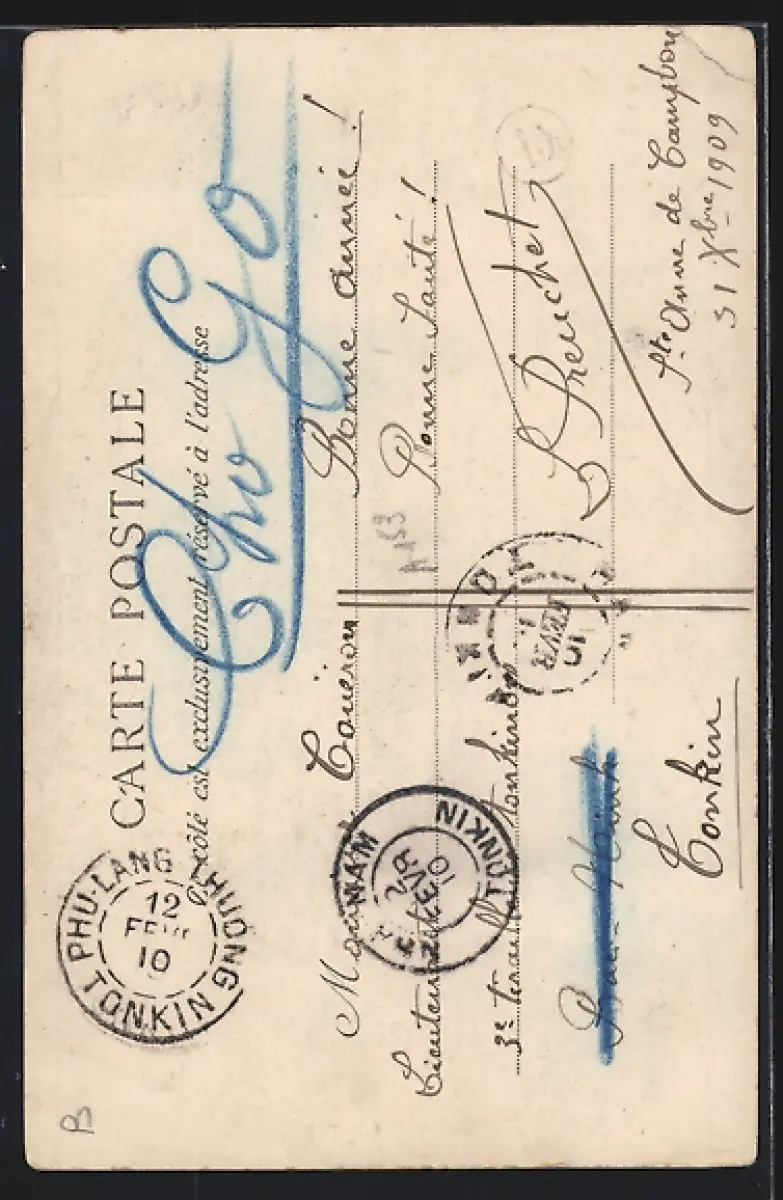 CARTE POSTALE
côté est exclusivement réservé à l'adresse
Cho Go
PHU-LANG-THUONG
12
FEVR
10
TONKIN
Couëron
Lieutenant
3e tiraill Tonkinois
Tonkin
NAM
FEVR
10
TONKIN
FEVR
10
Bonne année!
Bonne Santé!
Ste Anne de Campbon
31 Xbre 1909
A 153
B